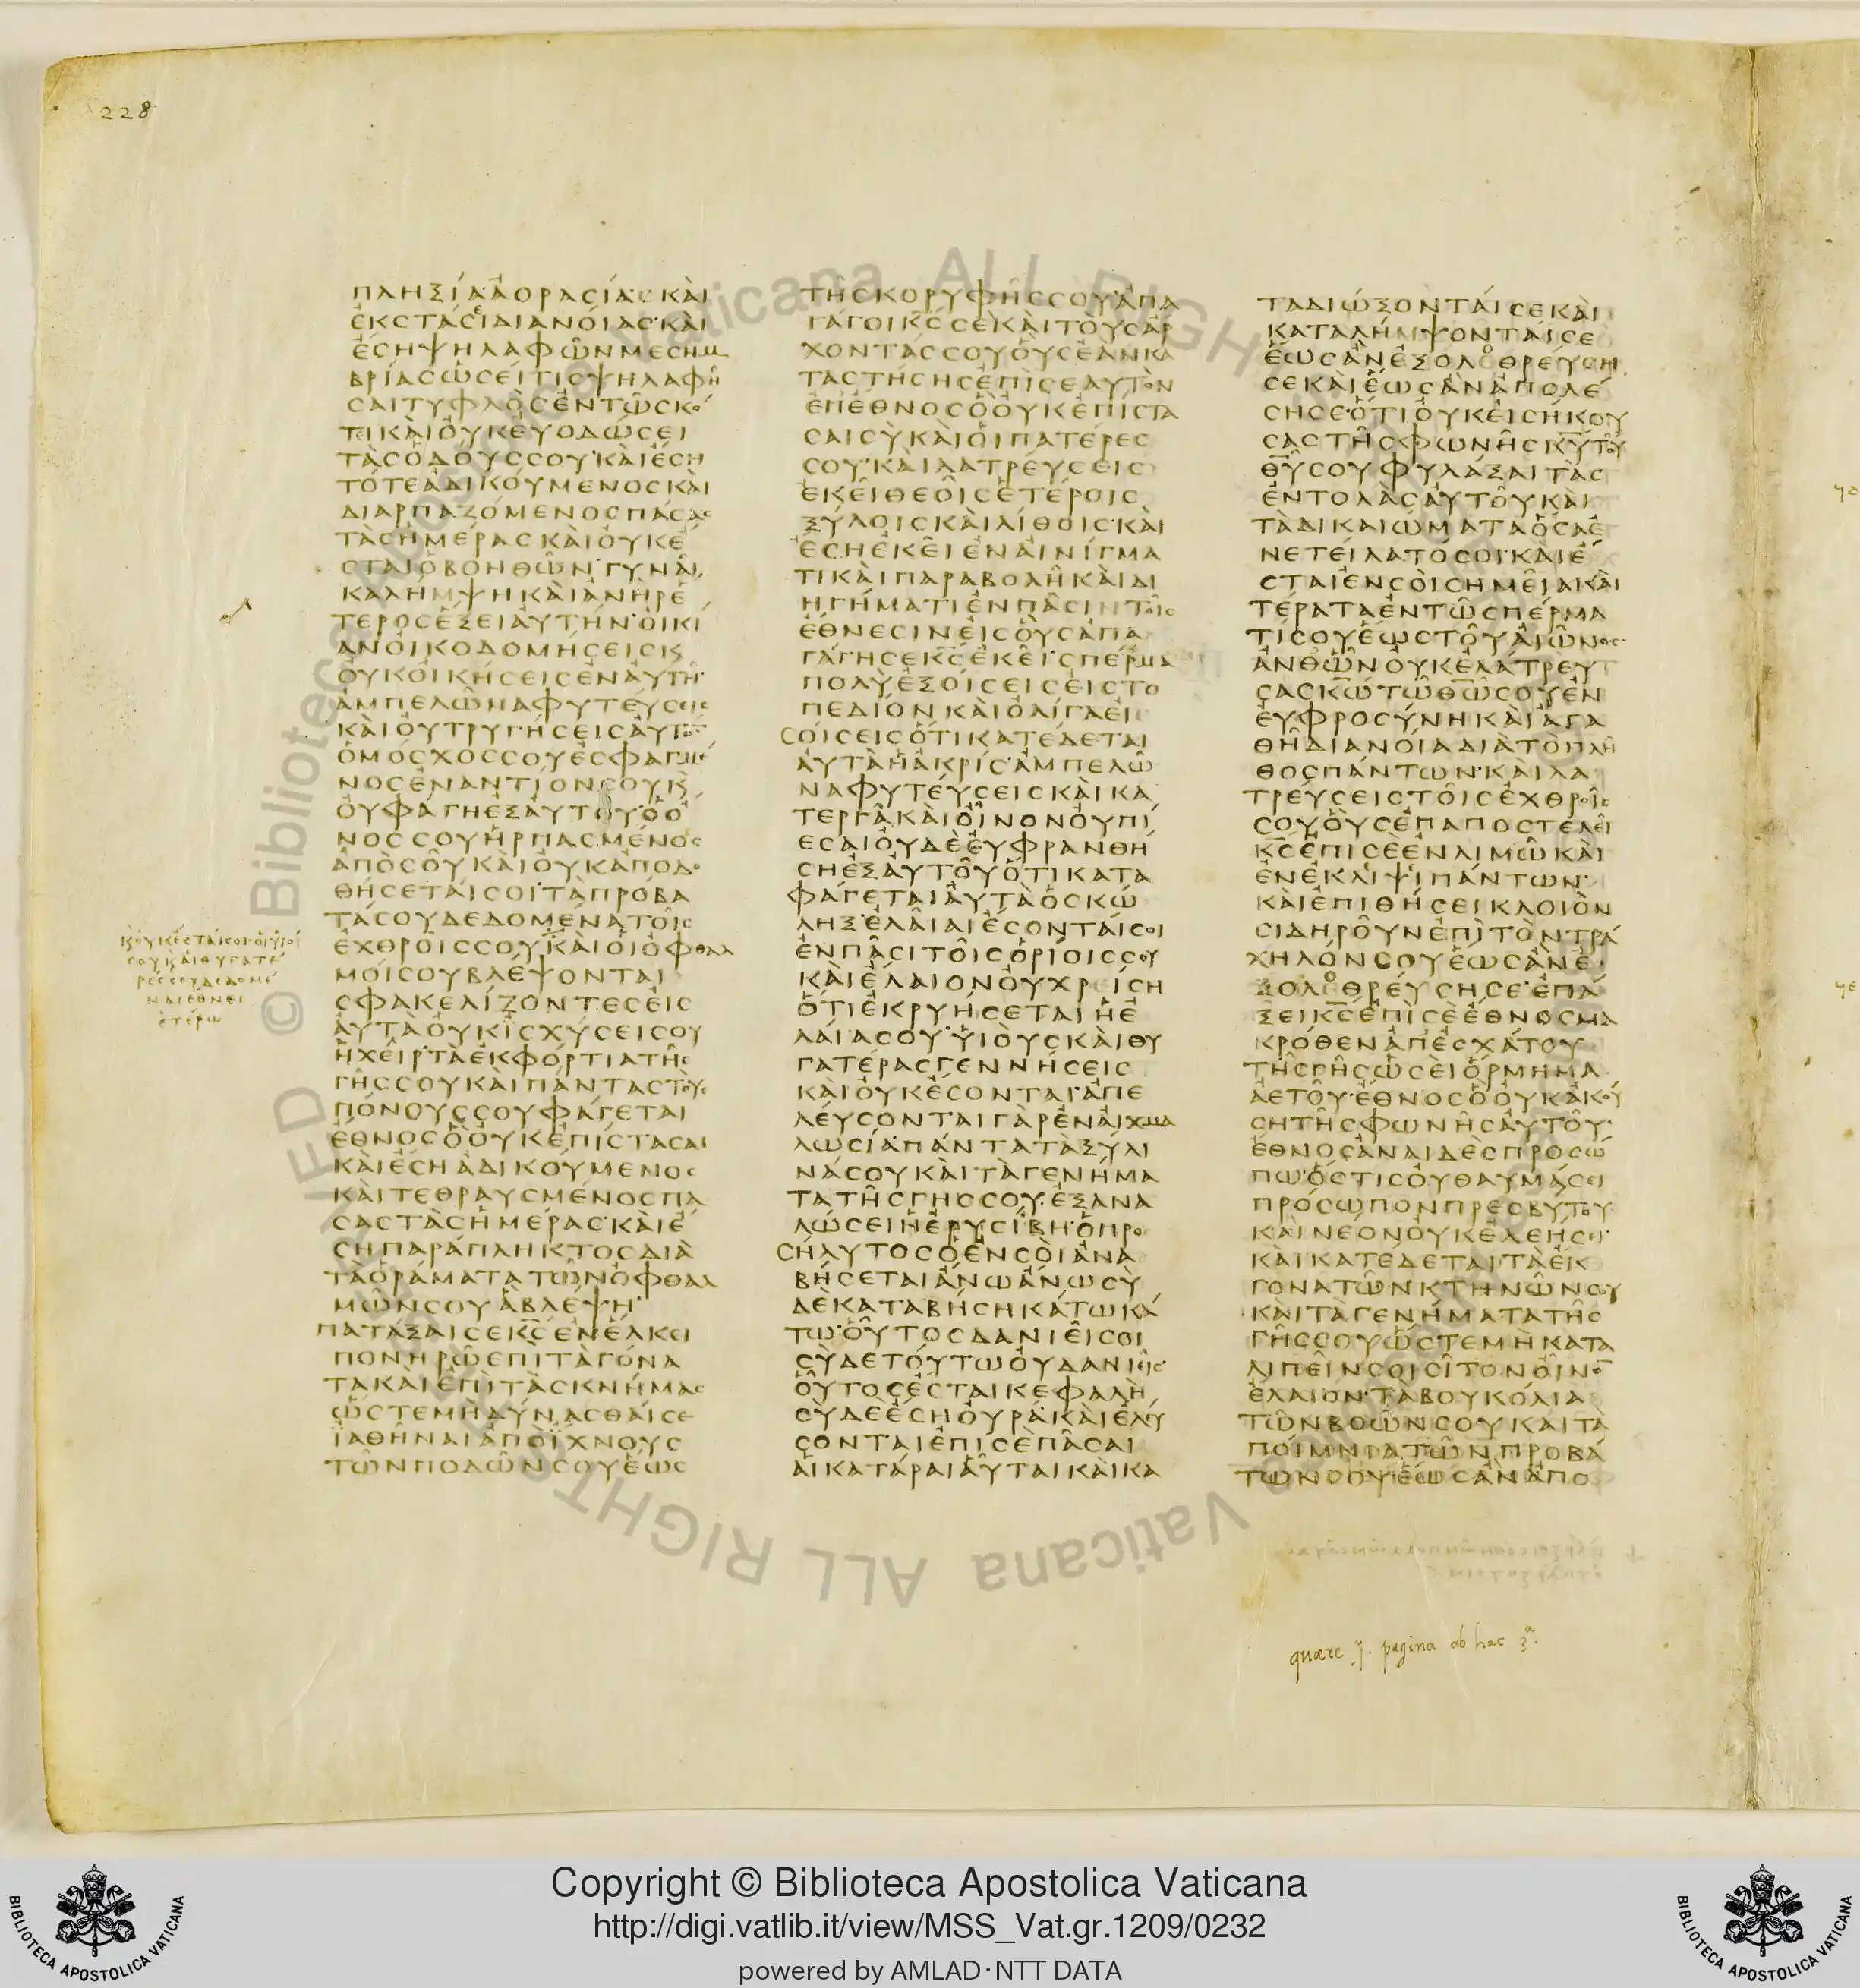 228
ΠΛΗΞΙΑ·ΑΟΡΑϹΙΑ·ΚΑΙ
ΕΚϹΤΑϹΙ ΔΙΑΝΟΙΑϹ·ΚΑΙ
ΕϹΗ ΨΗΛΑΦΩΝ ΜΕϹΗΜ
ΒΡΙΑϹ ΩϹΕΙ ΤΙϹ ΨΗΛΑΦΗ
ϹΑΙ ΤΥΦΛΟϹ ΕΝ ΤΩ ϹΚΟ
ΤΕΙ ΚΑΙ ΟΥΚ ΕΥΟΔΩϹΕΙ
ΤΑϹ ΟΔΟΥϹ ϹΟΥ·ΚΑΙ ΕϹΗ
ΤΟΤΕ ΑΔΙΚΟΥΜΕΝΟϹ ΚΑΙ
ΔΙΑΡΠΑΖΟΜΕΝΟϹ ΠΑϹΑϹ
ΤΑϹ ΗΜΕΡΑϹ ΚΑΙ ΟΥΚ Ε
ϹΤΑΙ Ο ΒΟΗΘΩΝ·ΓΥΝΑΙ
ΚΑ ΛΗΜΨΗ ΚΑΙ ΑΝΗΡ Ε
ΤΕΡΟϹ ΕΞΕΙ ΑΥΤΗΝ·ΟΙΚΙ
ΑΝ ΟΙΚΟΔΟΜΗϹΕΙϹ Κ
ΟΥΚ ΟΙΚΗϹΕΙϹ ΕΝ ΑΥΤΗ·
ΑΜΠΕΛΩΝΑ ΦΥΤΕΥϹΕΙϹ
ΚΑΙ ΟΥ ΤΡΥΓΗϹΕΙϹ ΑΥΤΟΝ
Ο ΜΟϹΧΟϹ ϹΟΥ ΕϹΦΑΓΜΕ
ΝΟϹ ΕΝΑΝΤΙΟΝ ϹΟΥ Κ
ΟΥ ΦΑΓΗ ΕΞ ΑΥΤΟΥ·Ο Ο
ΝΟϹ ϹΟΥ ΗΡΠΑϹΜΕΝΟϹ
ΑΠΟ ϹΟΥ ΚΑΙ ΟΥΚ ΑΠΟΔΟ
ΘΗϹΕΤΑΙ ϹΟΙ·ΤΑ ΠΡΟΒΑ
ΤΑ ϹΟΥ ΔΕΔΟΜΕΝΑ ΤΟΙϹ
ΕΧΘΡΟΙϹ ϹΟΥ ΚΑΙ ΟΙ ΟΦΘΑΛ
ΜΟΙ ϹΟΥ ΒΛΕΨΟΝΤΑΙ
ϹΦΑΚΕΛΙΖΟΝΤΕϹ ΕΙϹ
ΑΥΤΑ ΟΥΚ ΙϹΧΥϹΕΙ ϹΟΥ
Η ΧΕΙΡ·ΤΑ ΕΚΦΟΡΤΙΑ ΤΗϹ
ΓΗϹ ϹΟΥ ΚΑΙ ΠΑΝΤΑϹ ΤΟΥϹ
ΠΟΝΟΥϹ ϹΟΥ ΦΑΓΕΤΑΙ
ΕΘΝΟϹ Ο ΟΥΚ ΕΠΙϹΤΑϹΑΙ
ΚΑΙ ΕϹΗ ΑΔΙΚΟΥΜΕΝΟϹ
ΚΑΙ ΤΕΘΡΑΥϹΜΕΝΟϹ ΠΑ
ϹΑϹ ΤΑϹ ΗΜΕΡΑϹ·ΚΑΙ Ε
ϹΗ ΠΑΡΑΠΛΗΚΤΟϹ ΔΙΑ
ΤΑ ΟΡΑΜΑΤΑ ΤΩΝ ΟΦΘΑΛ
ΜΩΝ ϹΟΥ Α ΒΛΕΨΗ·
ΠΑΤΑΞΑΙ ϹΕ ΚϹ ΕΝ ΕΛΚΕΙ
ΠΟΝΗΡΩ ΕΠΙ ΤΑ ΓΟΝΑ
ΤΑ ΚΑΙ ΕΠΙ ΤΑϹ ΚΝΗΜΑϹ
ΩϹΤΕ ΜΗ ΔΥΝΑϹΘΑΙ ϹΕ
ΙΑΘΗΝΑΙ ΑΠΟ ΙΧΝΟΥϹ
ΤΩΝ ΠΟΔΩΝ ϹΟΥ ΕΩϹ
ΚΟΥΚ ΕϹΤΑΙ ϹΟΙ·ΟΙ ΥΙΟΙ
ϹΟΥ ΚΑΙ ΘΥΓΑΤΕ
ΡΕϹ ϹΟΥ ΔΕΔΟΜΕ
ΝΑΙ ΕΘΝΕΙ
ΕΤΕΡΩ
ΤΗϹ ΚΟΡΥΦΗϹ ϹΟΥ·ΑΠΑ
ΓΑΓΟΙ ΚϹ ϹΕ ΚΑΙ ΤΟΥϹ ΑΡ
ΧΟΝΤΑϹ ϹΟΥ ΟΥϹ ΕΑΝ ΚΑ
ΤΑϹΤΗϹΗϹ ΕΠΙ ϹΕΑΥΤΟΝ
ΕΠ ΕΘΝΟϹ Ο ΟΥΚ ΕΠΙϹΤΑ
ϹΑΙ ϹΥ ΚΑΙ ΟΙ ΠΑΤΕΡΕϹ
ϹΟΥ·ΚΑΙ ΛΑΤΡΕΥϹΕΙϹ
ΕΚΕΙ ΘΕΟΙϹ ΕΤΕΡΟΙϹ
ΞΥΛΟΙϹ ΚΑΙ ΛΙΘΟΙϹ·ΚΑΙ
ΕϹΗ ΕΚΕΙ ΕΝ ΑΙΝΙΓΜΑ
ΤΙ ΚΑΙ ΠΑΡΑΒΟΛΗ ΚΑΙ ΔΙ
ΗΓΗΜΑΤΙ ΕΝ ΠΑϹΙΝ ΤΟΙϹ
ΕΘΝΕϹΙΝ ΕΙϹ ΟΥϹ ΑΠΑ
ΓΑΓΗ ϹΕ ΚϹ ΕΚΕΙ·ϹΠΕΡΜΑ
ΠΟΛΥ ΕΞΟΙϹΕΙϹ ΕΙϹ ΤΟ
ΠΕΔΙΟΝ ΚΑΙ ΟΛΙΓΑ ΕΙϹ
ΟΙϹΕΙϹ ΟΤΙ ΚΑΤΕΔΕΤΑΙ
ΑΥΤΑ Η ΑΚΡΙϹ·ΑΜΠΕΛΩ
ΝΑ ΦΥΤΕΥϹΕΙϹ ΚΑΙ ΚΑ
ΤΕΡΓΑ ΚΑΙ ΟΙΝΟΝ ΟΥ ΠΙ
ΕϹΑΙ ΟΥΔΕ ΕΥΦΡΑΝΘΗ
ϹΗ ΕΞ ΑΥΤΟΥ ΟΤΙ ΚΑΤΑ
ΦΑΓΕΤΑΙ ΑΥΤΑ Ο ϹΚΩ
ΛΗΞ·ΕΛΑΙΑΙ ΕϹΟΝΤΑΙ ϹΟΙ
ΕΝ ΠΑϹΙ ΤΟΙϹ ΟΡΙΟΙϹ ϹΟΥ
ΚΑΙ ΕΛΑΙΟΝ ΟΥ ΧΡΕΙϹΗ
ΟΤΙ ΕΚΡΥΗϹΕΤΑΙ Η Ε
ΛΑΙΑ ϹΟΥ·ΥΙΟΥϹ ΚΑΙ ΘΥ
ΓΑΤΕΡΑϹ ΓΕΝΝΗϹΕΙϹ
ΚΑΙ ΟΥΚ ΕϹΟΝΤΑΙ·ΑΠΕ
ΛΕΥϹΟΝΤΑΙ ΓΑΡ ΕΝ ΑΙΧΜΑ
ΛΩϹΙΑ·ΠΑΝΤΑ ΤΑ ΞΥΛΙ
ΝΑ ϹΟΥ ΚΑΙ ΤΑ ΓΕΝΗΜΑ
ΤΑ ΤΗϹ ΓΗϹ ϹΟΥ·ΕΞΑΝΑ
ΛΩϹΕΙ Η ΕΡΥϹΙΒΗ·Ο ΠΡΟ
ϹΗΛΥΤΟϹ Ο ΕΝ ϹΟΙ ΑΝΑ
ΒΗϹΕΤΑΙ ΑΝΩ ΑΝΩ ϹΥ
ΔΕ ΚΑΤΑΒΗϹΗ ΚΑΤΩ ΚΑ
ΤΩ·ΟΥΤΟϹ ΔΑΝΙΕΙ ϹΟΙ
ϹΥ ΔΕ ΤΟΥΤΩ ΟΥ ΔΑΝΙΕΙϹ·
ΟΥΤΟϹ ΕϹΤΑΙ ΚΕΦΑΛΗ
ϹΥ ΔΕ ΕϹΗ ΟΥΡΑ·ΚΑΙ ΕΛΕΥ
ϹΟΝΤΑΙ ΕΠΙ ϹΕ ΠΑϹΑΙ
ΑΙ ΚΑΤΑΡΑΙ ΑΥΤΑΙ ΚΑΙ ΚΑ
ΤΑΔΙΩΞΟΝΤΑΙ ϹΕ ΚΑΙ
ΚΑΤΑΛΗΜΨΟΝΤΑΙ ϹΕ
ΕΩϹ ΑΝ ΕΞΟΛΕΘΡΕΥϹΗ
ϹΕ ΚΑΙ ΕΩϹ ΑΝ ΑΠΟΛΕ
ϹΗ ϹΕ·ΟΤΙ ΟΥΚ ΕΙϹΗΚΟΥ
ϹΑϹ ΤΗϹ ΦΩΝΗϹ ΚΥ ΤΟΥ
ΘΥ ϹΟΥ ΦΥΛΑΞΑΙ ΤΑϹ
ΕΝΤΟΛΑϹ ΑΥΤΟΥ ΚΑΙ
ΤΑ ΔΙΚΑΙΩΜΑΤΑ ΟϹΑ Ε
ΝΕΤΕΙΛΑΤΟ ϹΟΙ·ΚΑΙ Ε
ϹΤΑΙ ΕΝ ϹΟΙ ϹΗΜΕΙΑ ΚΑΙ
ΤΕΡΑΤΑ ΕΝ ΤΩ ϹΠΕΡΜΑ
ΤΙ ϹΟΥ ΕΩϹ ΤΟΥ ΑΙΩΝΟϹ·
ΑΝΘ ΩΝ ΟΥΚ ΕΛΑΤΡΕΥ
ϹΑϹ ΚΩ ΤΩ ΘΩ ϹΟΥ ΕΝ
ΕΥΦΡΟϹΥΝΗ ΚΑΙ ΑΓΑ
ΘΗ ΔΙΑΝΟΙΑ ΔΙΑ ΤΟ ΠΛΗ
ΘΟϹ ΠΑΝΤΩΝ·ΚΑΙ ΛΑ
ΤΡΕΥϹΕΙϹ ΤΟΙϹ ΕΧΘΡΟΙϹ
ϹΟΥ ΟΥϹ ΕΠΑΠΟϹΤΕΛΕΙ
ΚϹ ΕΠΙ ϹΕ ΕΝ ΛΙΜΩ ΚΑΙ
ΕΝ ΕΚΔΙΨΙ ΠΑΝΤΩΝ·
ΚΑΙ ΕΠΙΘΗϹΕΙ ΚΛΟΙΟΝ
ϹΙΔΗΡΟΥΝ ΕΠΙ ΤΟΝ ΤΡΑ
ΧΗΛΟΝ ϹΟΥ ΕΩϹ ΑΝ Ε
ΞΟΛΕΘΡΕΥϹΗ ϹΕ·ΕΠΑ
ΞΕΙ ΚϹ ΕΠΙ ϹΕ ΕΘΝΟϹ ΜΑ
ΚΡΟΘΕΝ ΑΠ ΕϹΧΑΤΟΥ
ΤΗϹ ΓΗϹ ΩϹΕΙ ΟΡΜΗΜΑ
ΑΕΤΟΥ·ΕΘΝΟϹ Ο ΟΥΚ ΑΚΟΥ
ϹΗ ΤΗϹ ΦΩΝΗϹ ΑΥΤΟΥ·
ΕΘΝΟϹ ΑΝΑΙΔΕϹ ΠΡΟϹΩ
ΠΩ·ΟϹΤΙϹ ΟΥ ΘΑΥΜΑϹΕΙ
ΠΡΟϹΩΠΟΝ ΠΡΕϹΒΥΤΟΥ
ΚΑΙ ΝΕΟΝ ΟΥΚ ΕΛΕΗϹΕΙ·
ΚΑΙ ΚΑΤΕΔΕΤΑΙ ΤΑ ΕΚ
ΓΟΝΑ ΤΩΝ ΚΤΗΝΩΝ ϹΟΥ
ΚΑΙ ΤΑ ΓΕΝΗΜΑΤΑ ΤΗϹ
ΓΗϹ ϹΟΥ ΩϹΤΕ ΜΗ ΚΑΤΑ
ΛΙΠΕΙΝ ϹΟΙ ϹΙΤΟΝ ΟΙΝΟΝ
ΕΛΑΙΟΝ·ΤΑ ΒΟΥΚΟΛΙΑ
ΤΩΝ ΒΟΩΝ ϹΟΥ ΚΑΙ ΤΑ
ΠΟΙΜΝΙΑ ΤΩΝ ΠΡΟΒΑ
ΤΩΝ ϹΟΥ ΕΩϹ ΑΝ ΑΠΟ
quære pagina ab hac 3ª.
Copyright © Biblioteca Apostolica Vaticana
http://digi.vatlib.it/view/MSS_Vat.gr.1209/0232
powered by AMLAD·NTT DATA
BIBLIOTECA APOSTOLICA VATICANA
BIBLIOTECA APOSTOLICA VATICANA